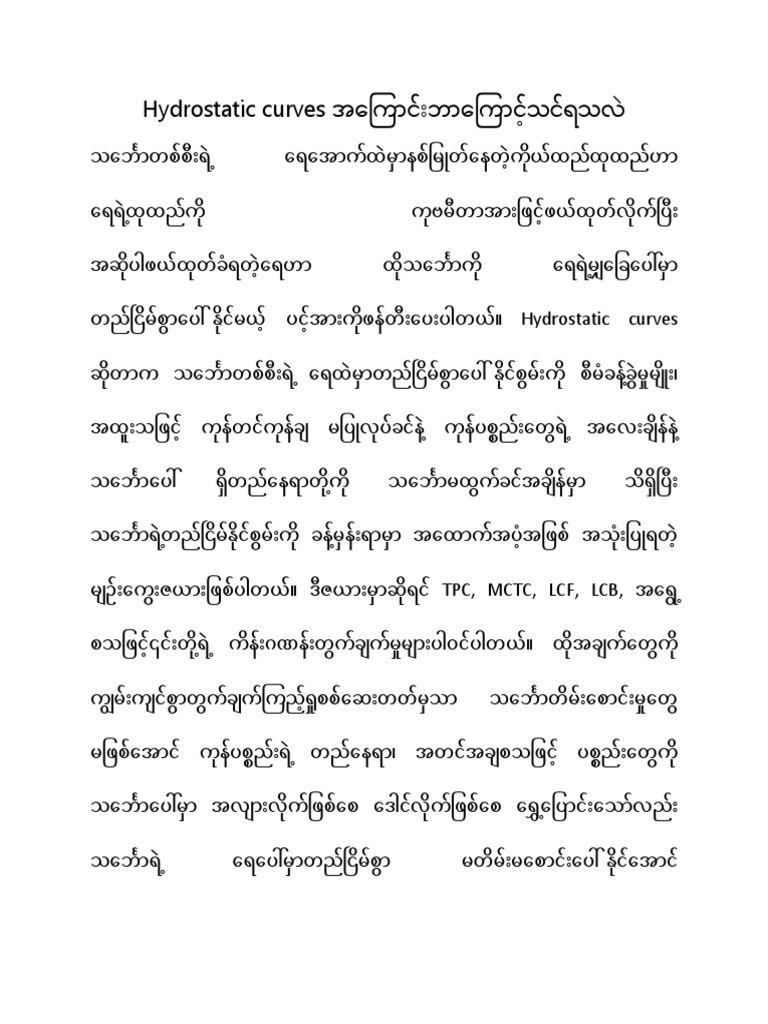 Hydrostatic curves အကြောင်းဘာကြောင့်သင်ရသလဲ
သင်္ဘောတစ်စီးရဲ့ ရေအောက်ထဲမှာနစ်မြုတ်နေတဲ့ကိုယ်ထည်ထုထည်ဟာ
ရေရဲ့ထုထည်ကို ကုဗမီတာအားဖြင့်ဖယ်ထုတ်လိုက်ပြီး
အဆိုပါဖယ်ထုတ်ခံရတဲ့ရေဟာ ထိုသင်္ဘောကို ရေရဲ့မျှခြေပေါ်မှာ
တည်ငြိမ်စွာပေါ်နိုင်မယ့် ပင့်အားကိုဖန်တီးပေးပါတယ်။ Hydrostatic curves
ဆိုတာက သင်္ဘောတစ်စီးရဲ့ ရေထဲမှာတည်ငြိမ်စွာပေါ်နိုင်စွမ်းကို စီမံခန့်ခွဲမှုမျိုး၊
အထူးသဖြင့် ကုန်တင်ကုန်ချ မပြုလုပ်ခင်နဲ့ ကုန်ပစ္စည်းတွေရဲ့ အလေးချိန်နဲ့
သင်္ဘောပေါ် ရှိတည်နေရာတို့ကို သင်္ဘောမထွက်ခင်အချိန်မှာ သိရှိပြီး
သင်္ဘောရဲ့တည်ငြိမ်နိုင်စွမ်းကို ခန့်မှန်းရာမှာ အထောက်အပံ့အဖြစ် အသုံးပြုရတဲ့
မျဉ်းကွေးဇယားဖြစ်ပါတယ်။ ဒီဇယားမှာဆိုရင် TPC, MCTC, LCF, LCB, အရွေ့
စသဖြင့်၎င်းတို့ရဲ့ ကိန်းဂဏန်းတွက်ချက်မှုများပါဝင်ပါတယ်။ ထိုအချက်တွေကို
ကျွမ်းကျင်စွာတွက်ချက်ကြည့်ရှုစစ်ဆေးတတ်မှသာ သင်္ဘောတိမ်းစောင်းမှုတွေ
မဖြစ်အောင် ကုန်ပစ္စည်းရဲ့ တည်နေရာ၊ အတင်အချစသဖြင့် ပစ္စည်းတွေကို
သင်္ဘောပေါ်မှာ အလျားလိုက်ဖြစ်စေ ဒေါင်လိုက်ဖြစ်စေ ရွှေ့ပြောင်းသော်လည်း
သင်္ဘောရဲ့ ရေပေါ်မှာတည်ငြိမ်စွာ မတိမ်းမစောင်းပေါ်နိုင်အောင်